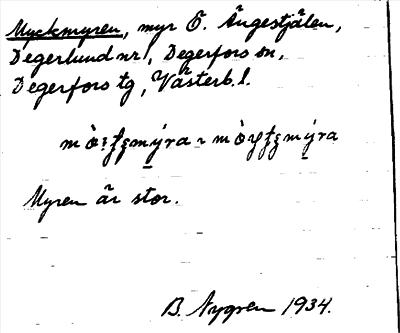 Myckmyren, myr Ö. Ängestjälen,
Degerlund nr 1, Degerfors sn,
Degerfors tg, Västerb. l.
Myren är stor.
B. Nygren 1934.